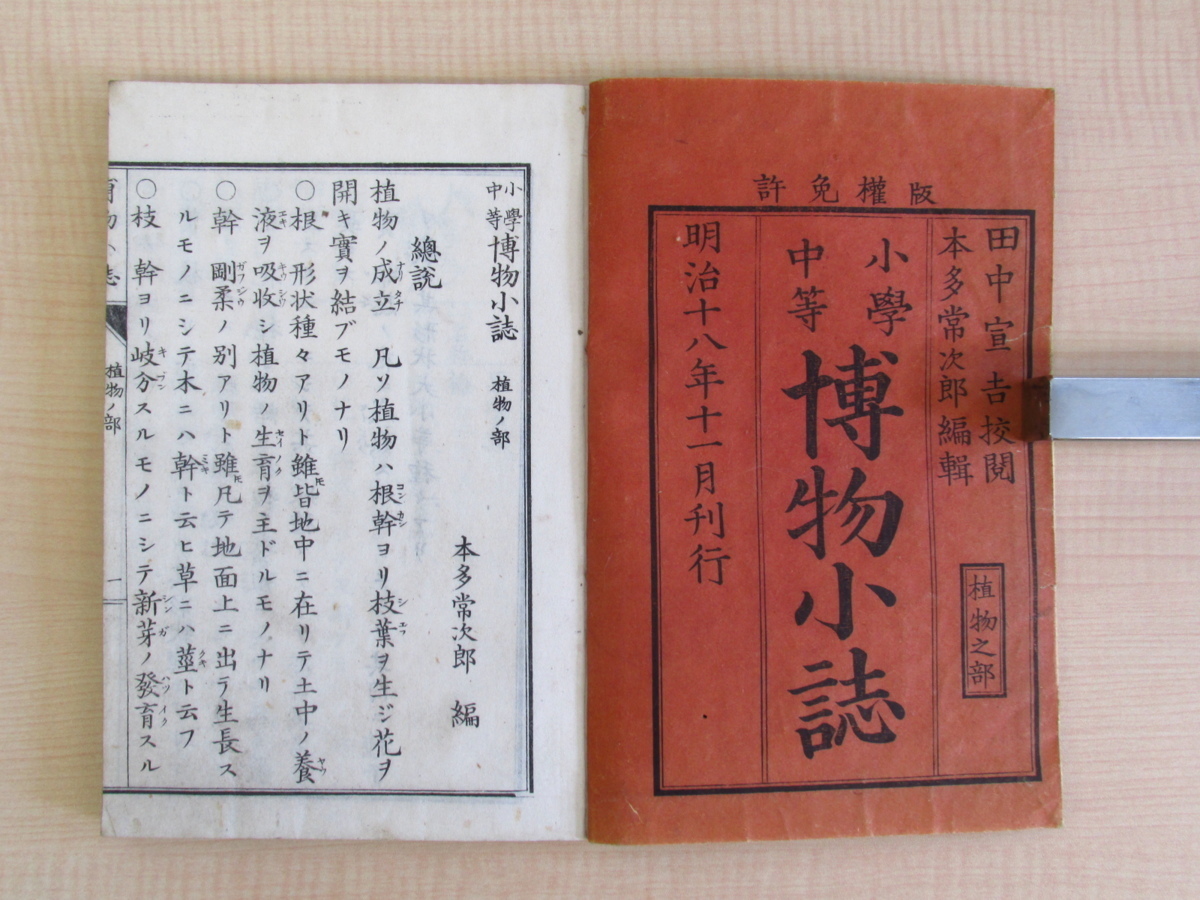 版權免許
田中宣吉校閲
本多常次郎編輯
植物之部
小學
中等
博物小誌
明治十八年十一月刊行
小學
中等
博物小誌 植物ノ部
本多常次郎 編
總説
植物ノ成立 凡ソ植物ハ根幹ヨリ枝葉ヲ生ジ花ヲ
開キ實ヲ結ブモノナリ
○根 形状種々アリト雖モ皆地中ニ在リテ土中ノ養
液ヲ吸收シ植物ノ生育ヲ主ドルモノナリ
○幹 剛柔ノ別アリト雖モ凡テ地面上ニ出テ生長ス
ルモノニシテ木ニハ幹ト云ヒ草ニハ莖ト云フ
○枝 幹ヨリ岐分スルモノニシテ新芽ノ發育スル
植物ノ部
一